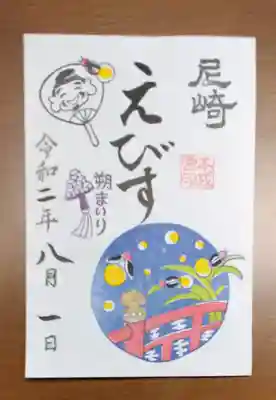 尼崎
えびす
朔まいり
令和二年八月一日